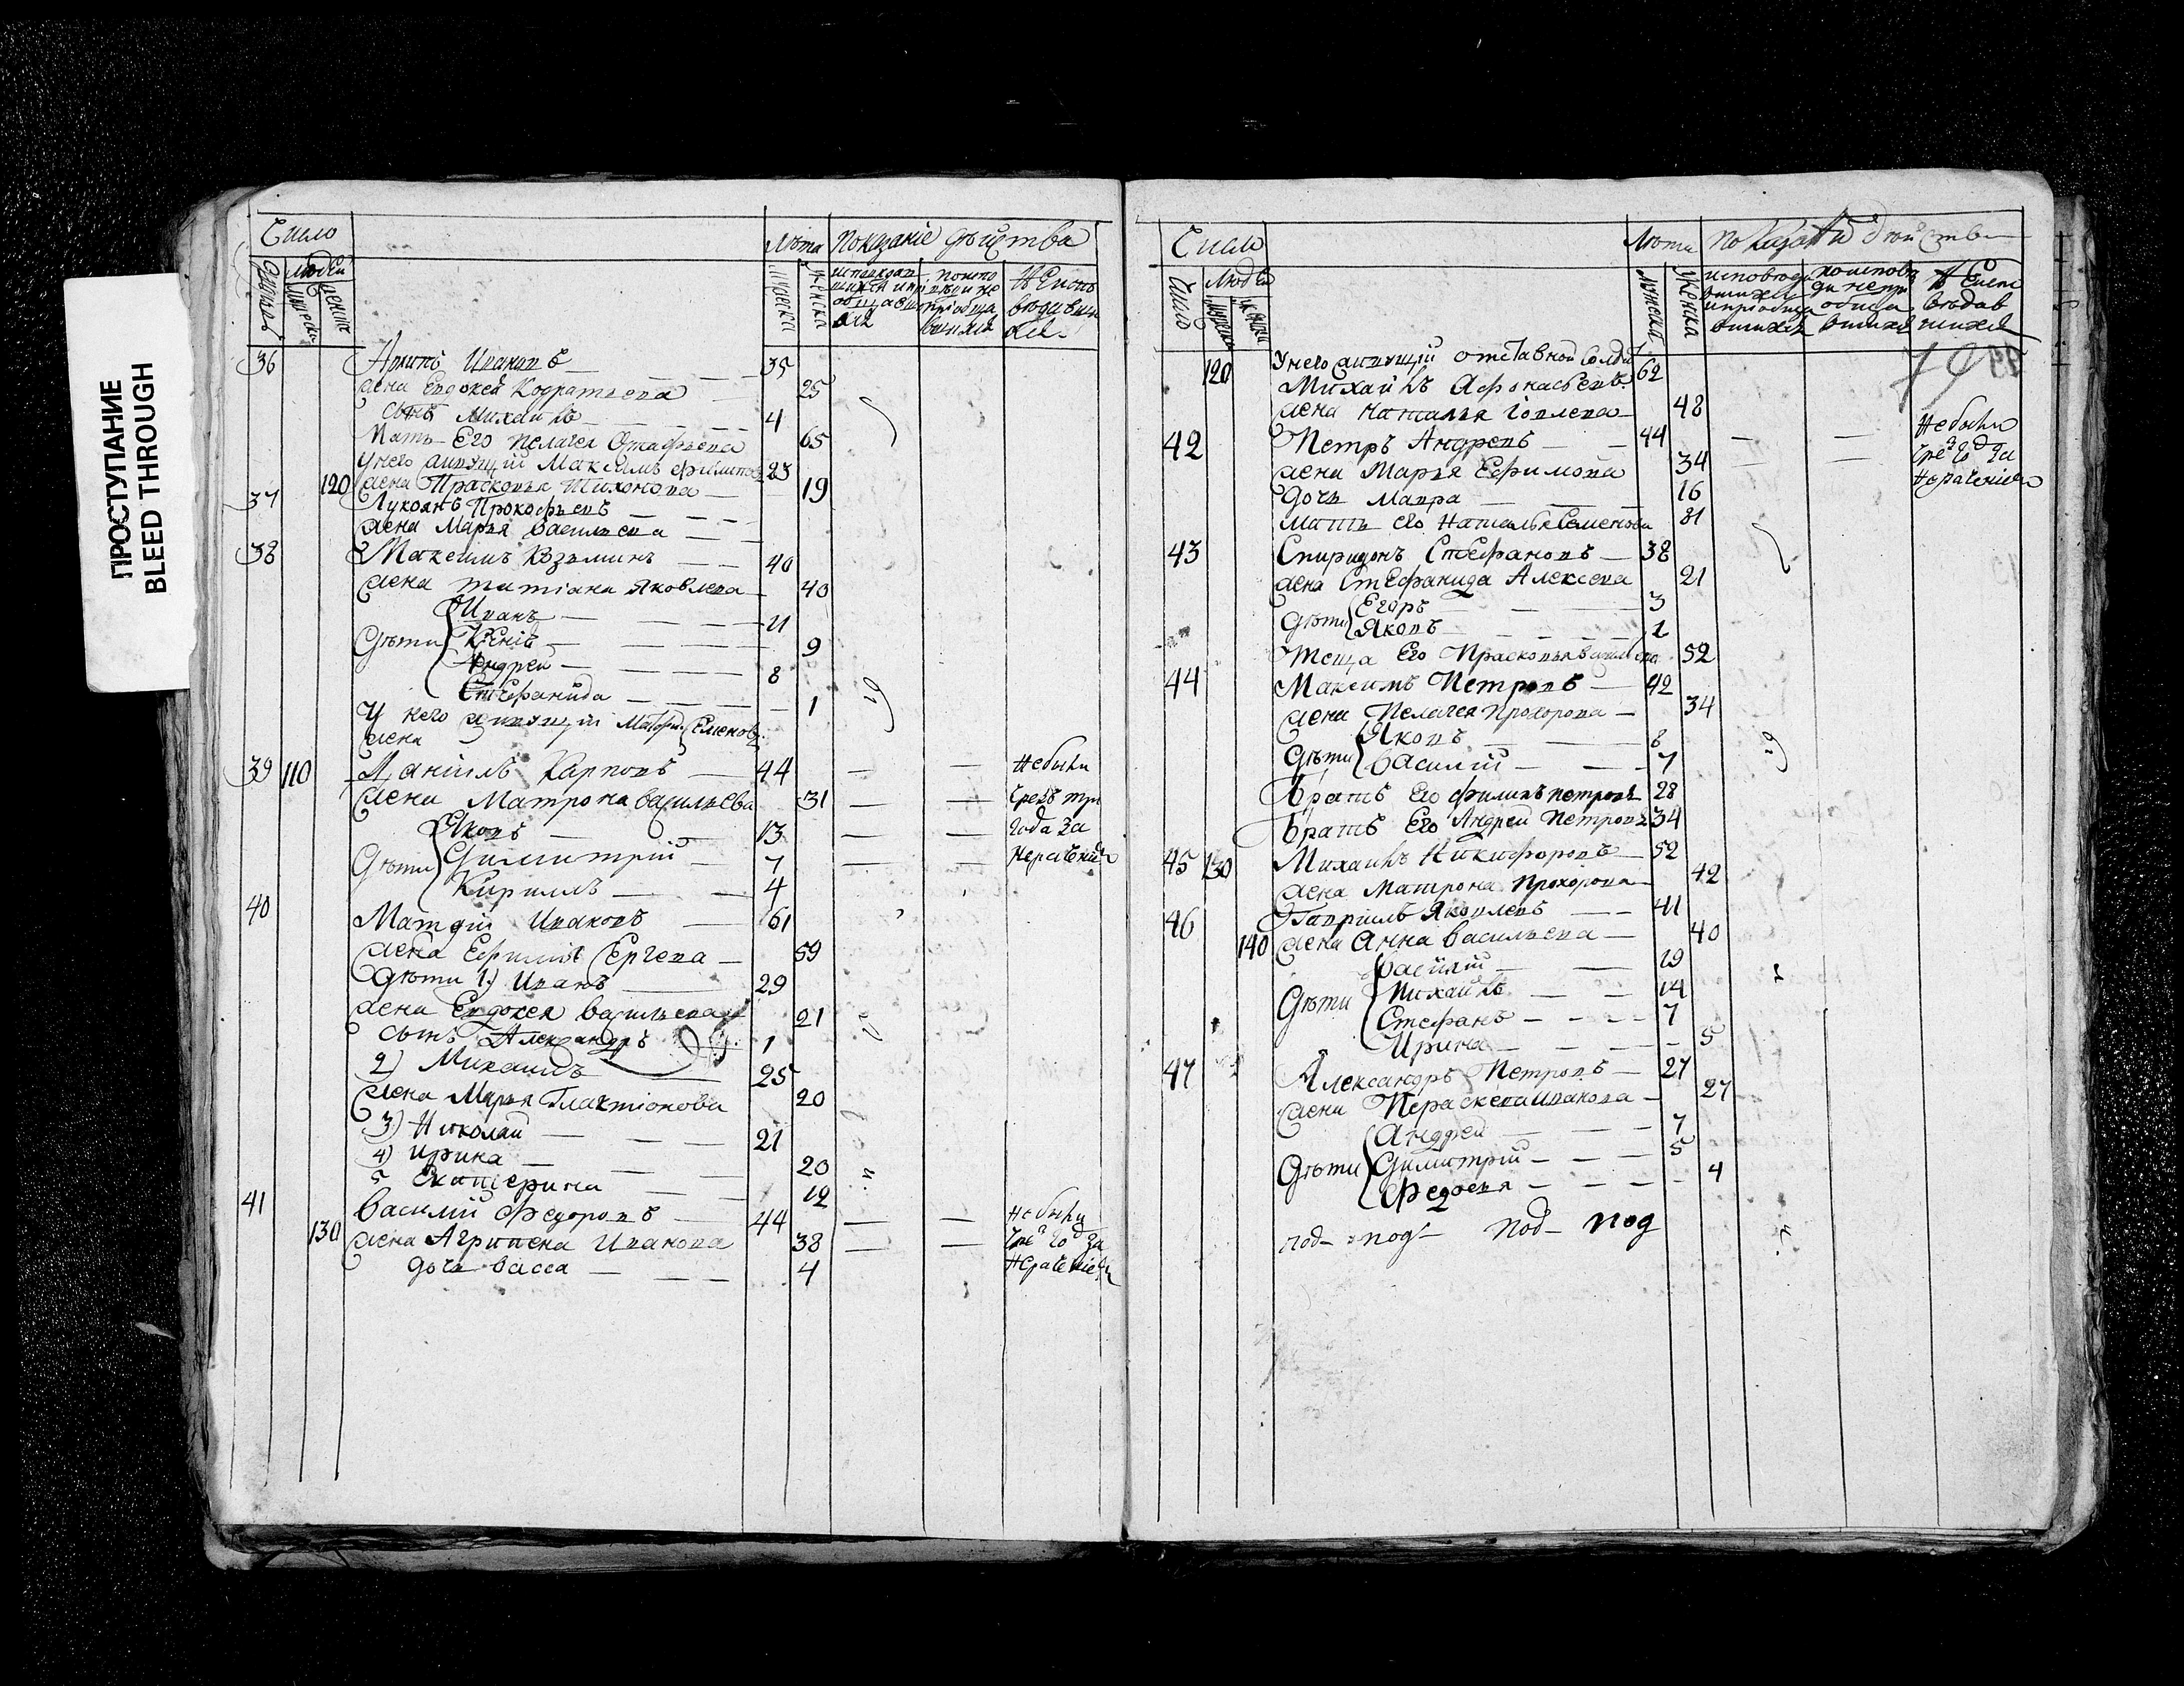 ПРОСТУПАНИЕ
BLEED THROUGH
Число
Лѣта Показаніе дѣйства
людей
36 Иванов 35
жена Евдокея Кодратьева 25
сынъ Михаилъ 4
Мать Его Пелагея 65
У него живущій Максимъ 23
120 жена Прасковья Тихонова 19
37 Лукоянъ Прокофьевъ
жена Марья Васильева
38 Максимъ Козьминъ 40
жена Татіана Яковлева 40
Иванъ 11
Дѣти 9
Андрей 8
Стефанида 1
У него живущій Семеновъ
жена
39 110 Даніилъ Карповъ 44 — — Небыли
жена Матрона Васильева 31 — — чрезъ три
Яковъ 13 — — года за
Дѣти Димитрій 7 — — нерачениемъ
Кириллъ 4
40 Матфій Ивановъ 61
жена Ефимія Сергева 59
Дѣти 1) Иванъ 29
жена Евдокея Васильева 21
сынъ Александръ 1
2) Михаилъ 25
жена Марья Галактионова 20
3) Николай 21
4) Ирина 20
5 Екатерина 12
41 Василий Федоровъ 44 — — Небыли
130 жена Агрипена Иванова 38 — — год за
дочь Васса 4
Число
Лѣта
Число Людей
120 У него живущій отставной Солдатъ 62
Михаилъ
жена Наталья 48
42 Петръ Андревъ 44 — — Небыли
жена Марья Ефимова 34 — — год за
дочь Мавра 16
мать его Наталья Семенова 81
43 Спиридонъ Стефановъ 38
жена Стефанида Алексева 21
Егоръ 3
Дѣти Яковъ 1
Теща Его Прасковья Васильева 52
44 Максимъ Петровъ 42
жена Пелагея Прохорова 34
Яковъ 8
Дѣти Василій 7
Братъ Его Филипъ Петровъ 28
Братъ Его Андрей Петровъ 34
45 130 Михаилъ Никифоровъ 52
жена Матрона Прохорова 42
46 Гавріилъ Яковлевъ 41
140 жена Анна Васильева 40
Василій 19
Дѣти Михаилъ 14
Стефанъ 7
Ирина 5
47 Александръ Петровъ 27
жена Параскева Иванова 27
Андрей 7
Дѣти Димитрій 5
Федосья 4
под под под под